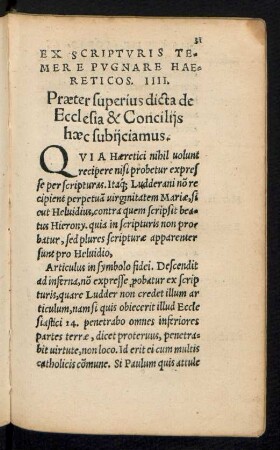 31
EX SCRIPTVRIS TE-
MERE PVGNARE HAE-
RETICOS. IIII.
Præter superius dicta de
Ecclesia & Concilijs
hæc subijciamus.
QVIA Hæretici nihil uolunt
recipere nisi probetur expres
se per scripturas. Itaq; Ludderani nō re
cipient perpetuā uirginitatem Mariæ, si
cut Heluidius, contra quem scripsit bea-
tus Hierony. quia in scripturis non pro-
batur, sed plures scripturæ apparenter
sunt pro Heluidio.
Articulus in symbolo fidei. Descendit
ad inferna, nō expresse ꝓbatur ex scrip
turis, quare Ludder non credet illum ar
ticulum, nam si quis obiecerit illud Eccle
siastici 24. penetrabo omnes inferiores
partes terræ, dicet proteruus, penetra-
bit uirtute, non loco. Id erit ei cum multis
catholicis cōmune. Si Paulum quis attule